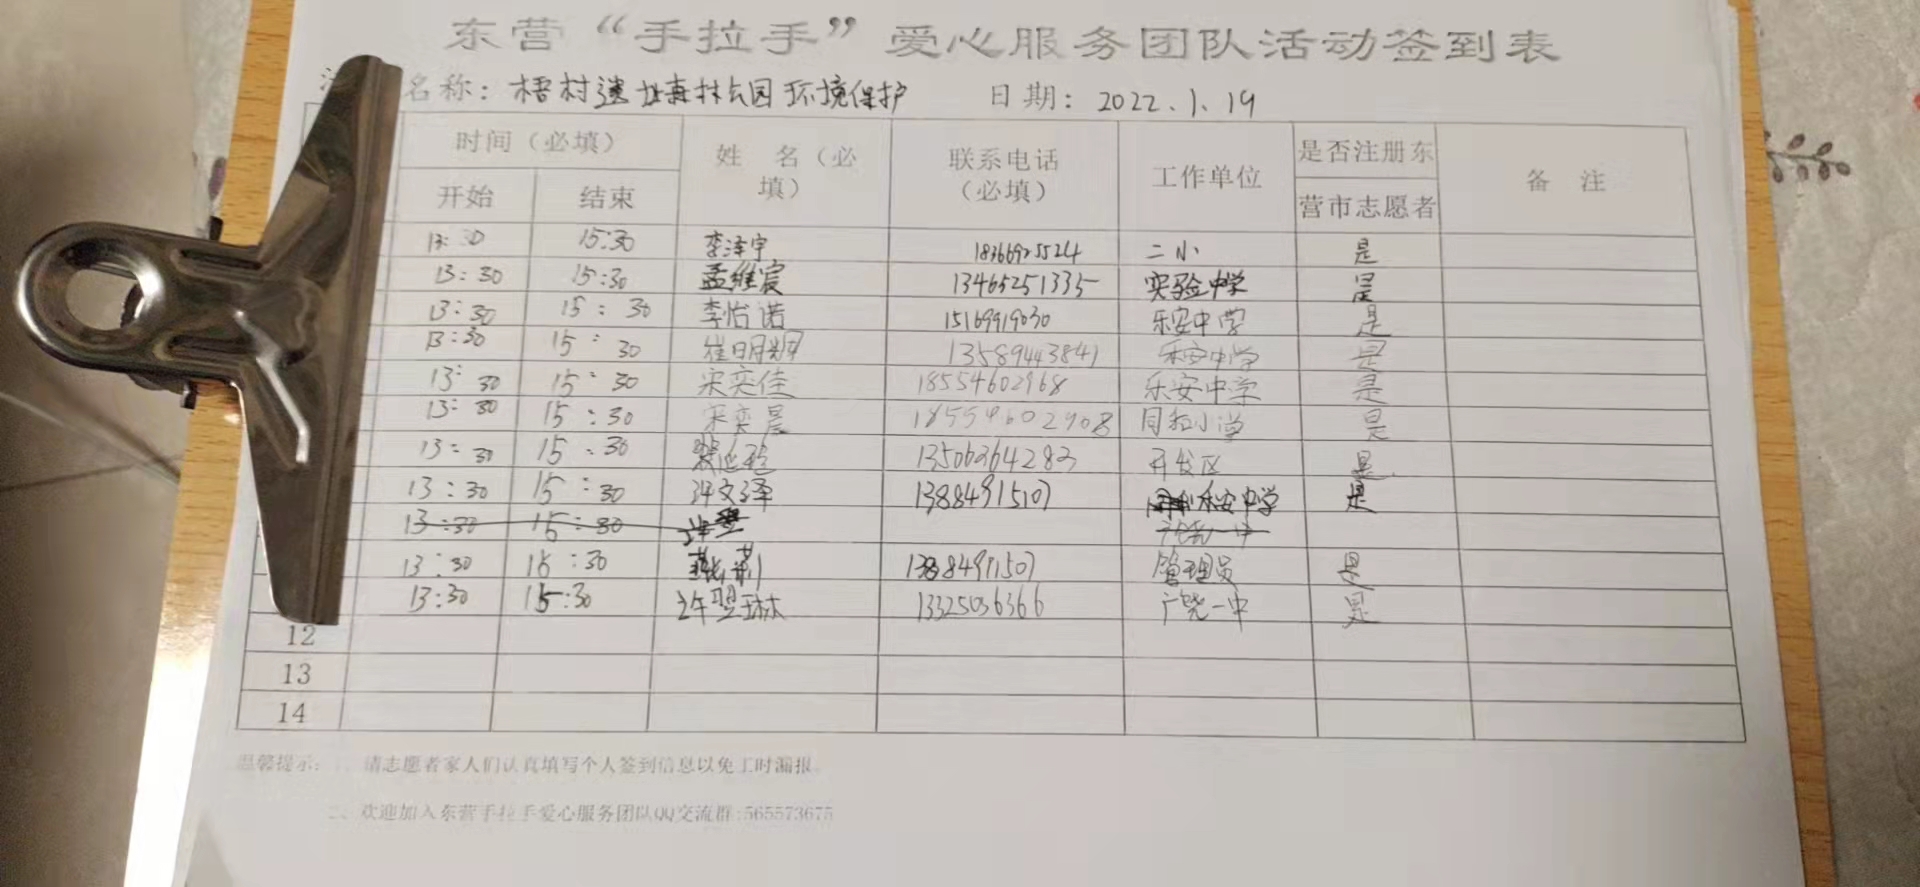 东营“手拉手”爱心服务团队活动签到表
名称：梧村遗址森林公园环境保护 日期：2022.1.19
时间（必填） 姓 名（必填） 联系电话（必填） 工作单位 是否注册东营市志愿者 备 注
开始 结束
13:30 15:30 李泽宇 18366925524 二小 是
13:30 15:30 孟维宸 13465251335 实验中学 是
13:30 15:30 李怡诺 15169919030 乐安中学 是
13:30 15:30 崔明辉 13589443841 乐安中学 是
13:30 15:30 宋奕佳 18554602968 乐安中学 是
13:30 15:30 宋奕晨 18554602908 同和小学 是
13:30 15:30 13506364283 开发区 是
13:30 15:30 许文泽 13884915107 乐安中学 是
13:30 15:30 许 广饶一中
13:30 15:30 13884991507 管理员 是
13:30 15:30 许珺琳 13325036366 广饶一中 是
12
13
14
温馨提示：一、请志愿者家人们认真填写个人签到信息以免工时漏报。
二、欢迎加入东营手拉手爱心服务团队QQ交流群:565573675